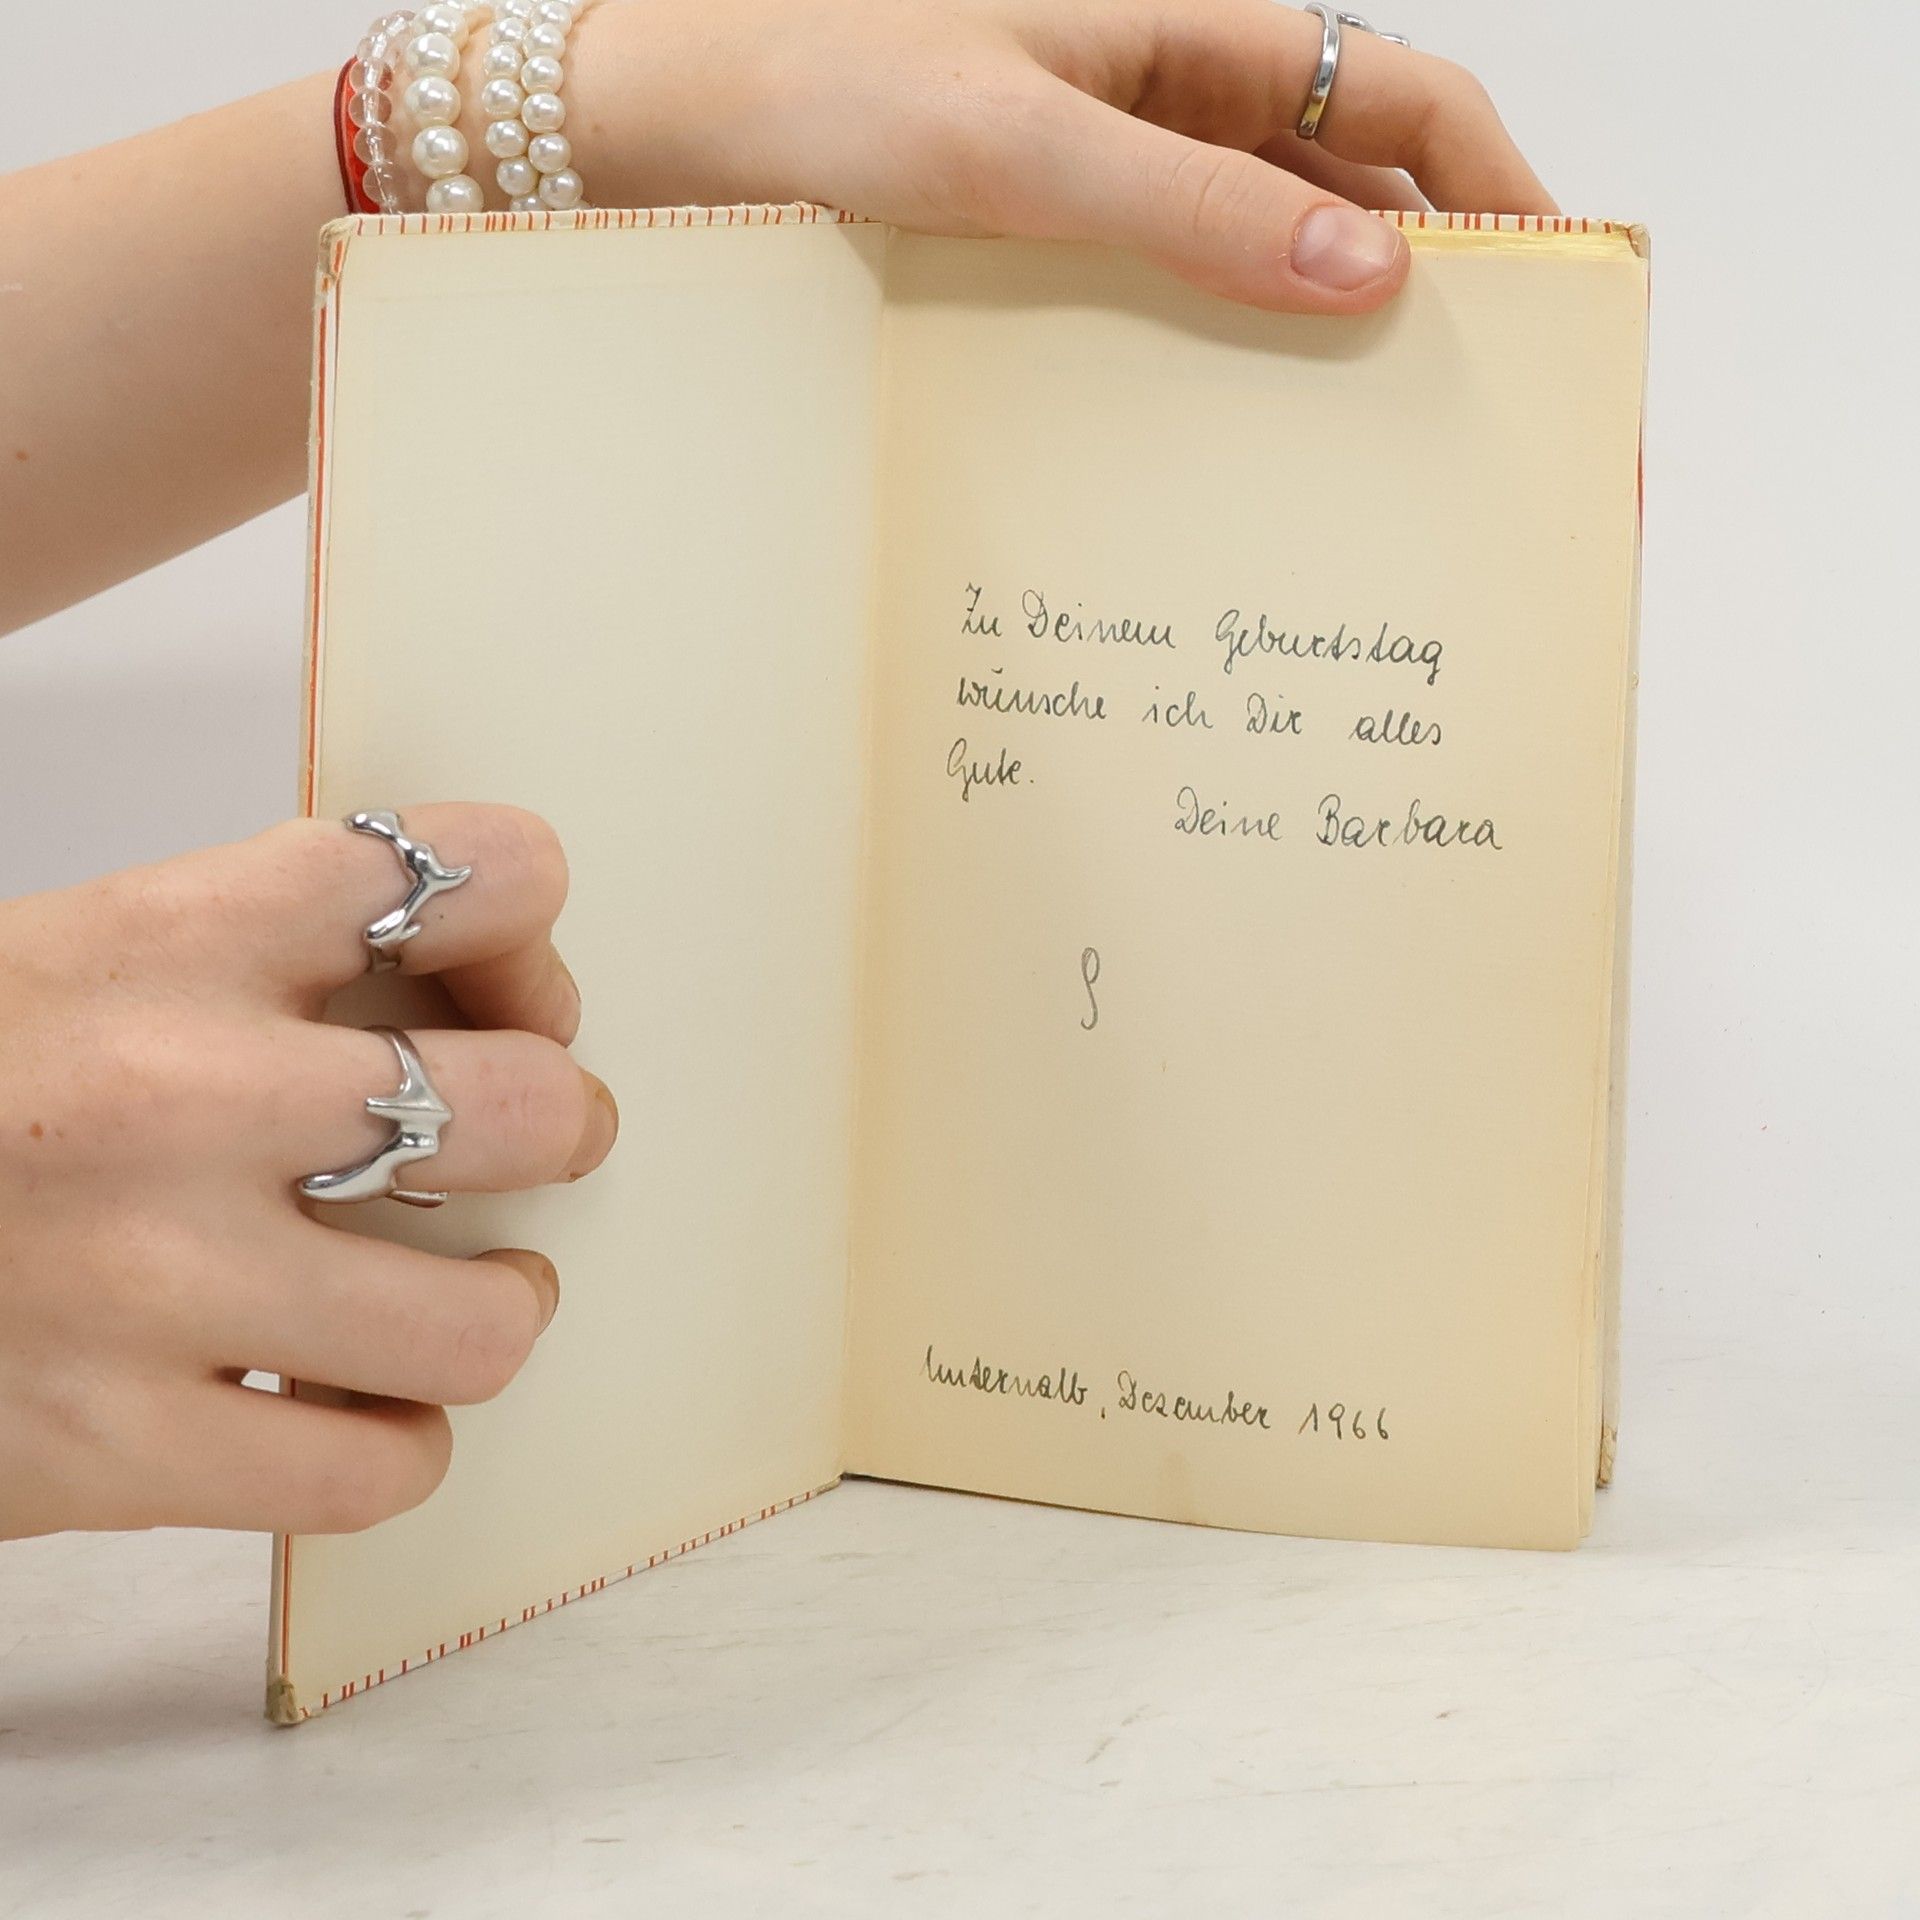 Zu Deinem Geburtstag
wünsche ich Dir alles
Gute.
Deine Barbara
Unternalb, Dezember 1966